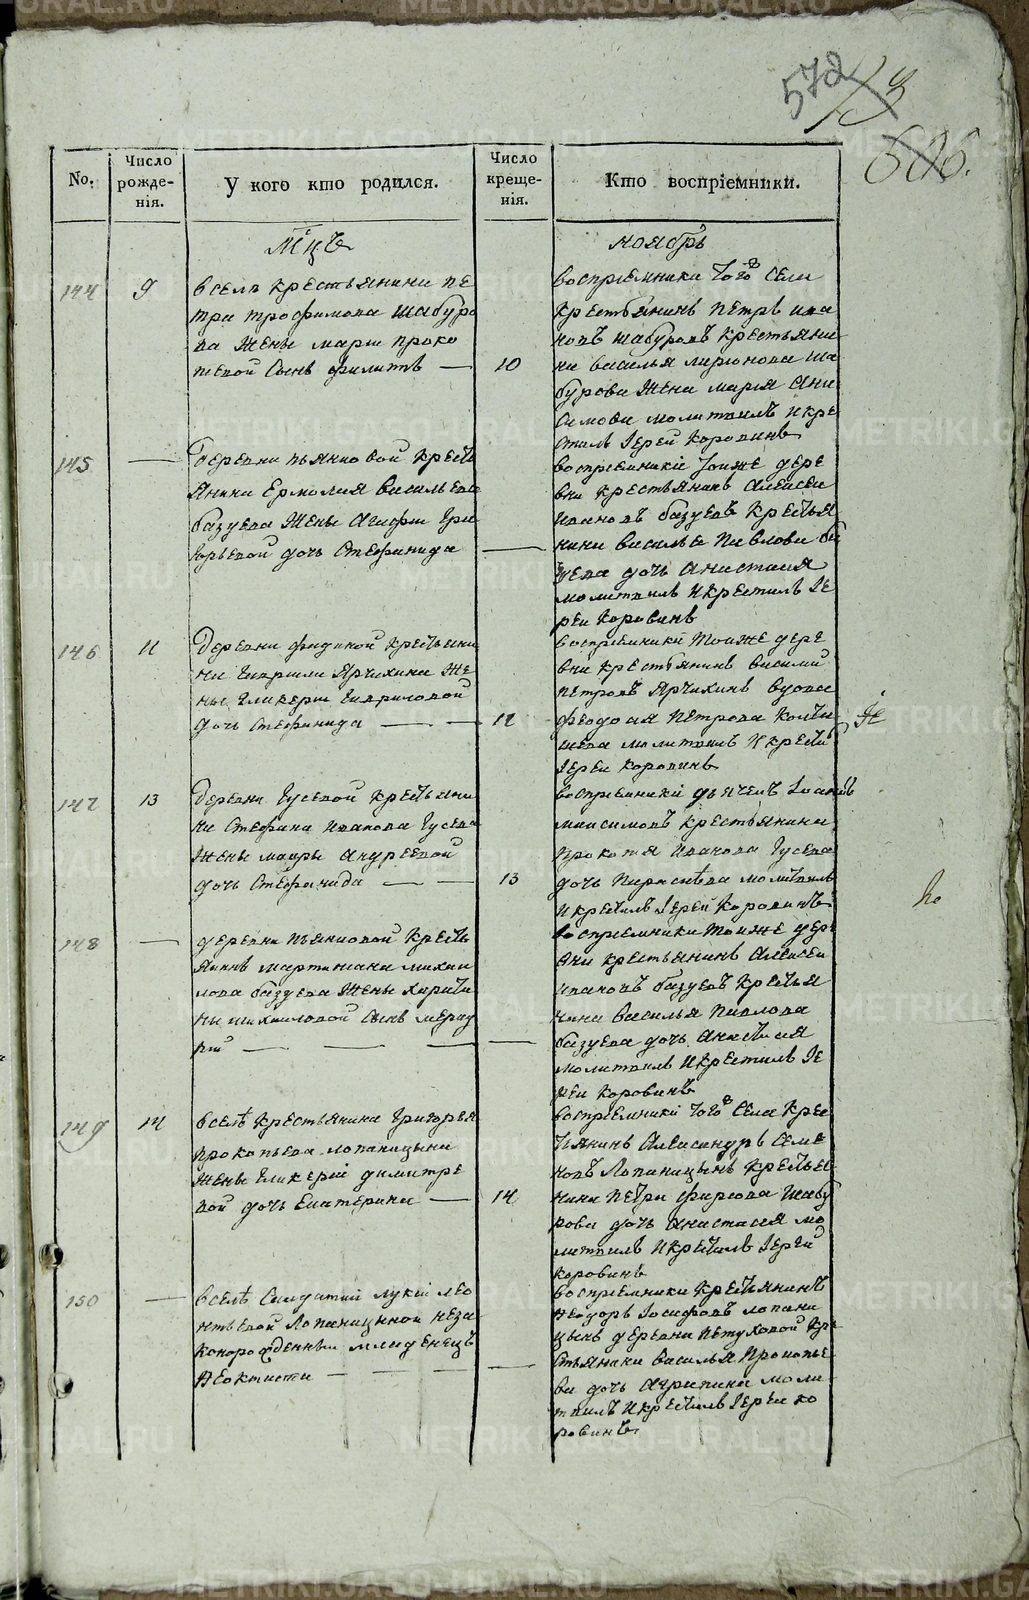 572
13
606.
No.
Число рожде-нія.
У кого кто родился.
Число креще-нія.
Кто воспріемники.
Мцъ
ноябрь
144
9
в селѣ крестьянина пе
тра трофимова шабуро
ва жены марьи проко
пьевой сынъ филиппъ
10
воспріемники того села
крестьянинъ петръ ива
новъ шабуровъ крестьяни
на василья ларионова ша
бурова жена марія ани
симова молитвилъ и кре
стилъ Іерей коровинъ
145
деревни пьянковой крестъ
янина ермолая васильева
базуева жены агафьи гри
горьевой дочь стефанида
воспріемники тоиже дере
вни крестьянинъ алексеи
ивановъ базуевъ крестья
нина василья павлова ба
зуева дочь анастасия
молитвилъ и крестилъ Іе
реи коровинъ
146
11
деревни крестьяни
на гаврилы Ярчихина же
ны гликерьи гавриловой
дочь стефанида
12
воспріемники тоиже дере
вни крестьянинъ василий
петровъ Ярчихинъ вдова
феодосия петрова
молитвилъ и крести
Іереи коровинъ
147
13
деревни гусевой крестьяни
на стефана иванова гусева
жены мавры андреевой
дочь стефанида
13
воспріемники дьячекъ Іоаннъ
максимовъ крестьянина
прокопя иванова гусева
дочь параскева молитвилъ
и крестилъ Іерей коровинъ
148
деревни пьянковой крестъ
янинъ мартиниана михаи
лова базуева жены харити
ны михаиловой сынъ меркур
ий
воспріемники тоиже дере
вни крестьянинъ алексеи
ивановъ базуевъ крестья
нина василья павлова
базуева дочь анастасия
молитвилъ и крестилъ Іе
реи коровинъ
149
14
в селѣ крестьянина григорья
прокопьева лопаницына
жены гликерии димитре
вой дочь екатерина
14
воспріемники того села крес
тьянинъ александръ семе
новъ лопаницынъ крестья
нина петра фирсова шабу
рова дочь анастасия мо
литвилъ и крестилъ Іерей
коровинъ
150
в селѣ солдатки лукіи лео
нтьевой лопаницыной неза
конорожденныи младенецъ
феоктистъ
воспріемники крестьянинъ
феодоръ Іосифовъ лопани
цынъ деревни петуховой кре
стьянина василья прокопье
ва дочь агрипина моли
твилъ и крестилъ Іереи ко
ровинъ
METRIKI.GASO-URAL.RU